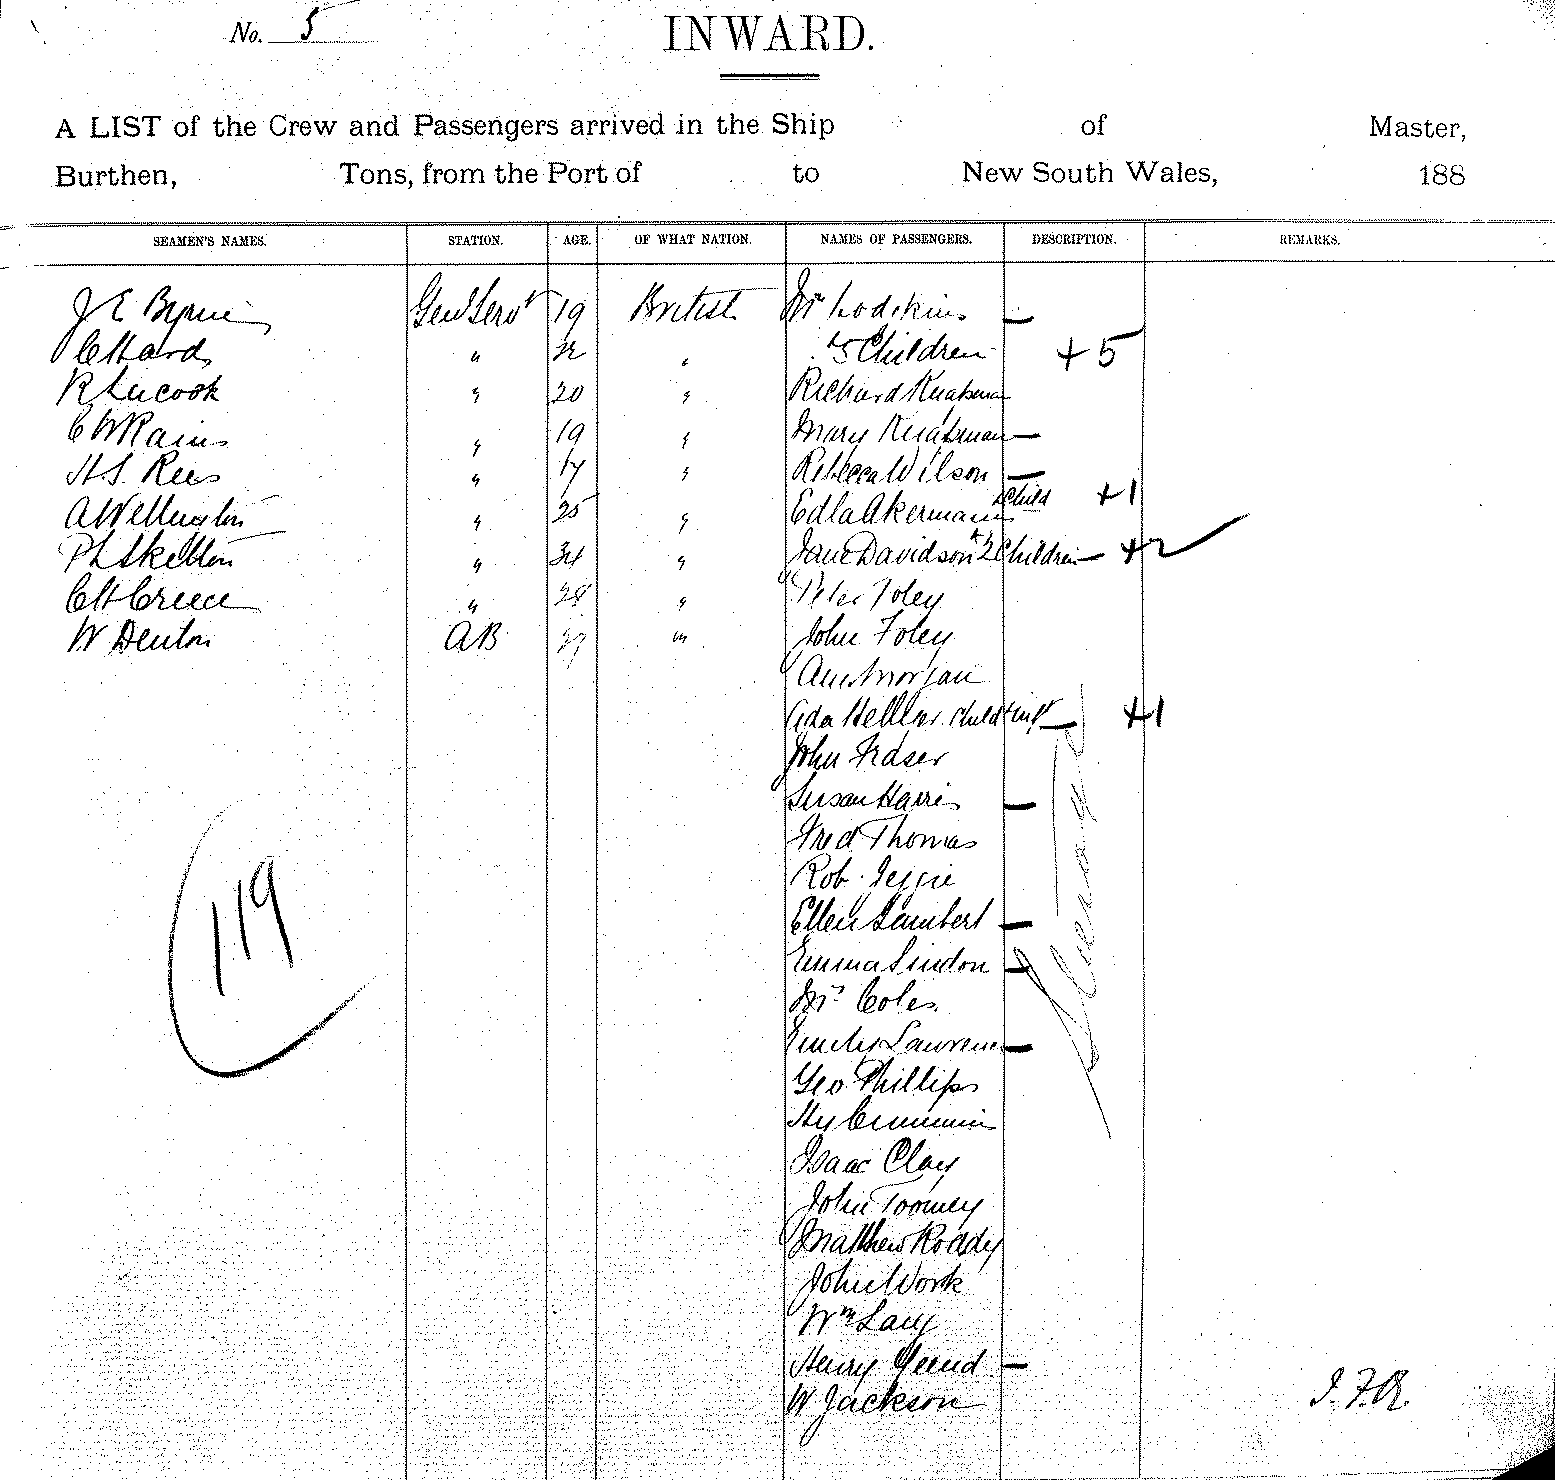 No. 5
INWARD.
A LIST of the Crew and Passengers arrived in the Ship of Master,
Burthen, Tons, from the Port of to New South Wales, 188
SEAMEN'S NAMES. STATION. AGE. OF WHAT NATION. NAMES OF PASSENGERS. DESCRIPTION. REMARKS.
J E Byrne Genl Servt 19 British Mrs Hodskins —
C Hards " 22 " " 5 Children +5
R Lucook " 20 " Richard Knapman
C W Rains " 19 " Mary Knapman —
H.S. Rees " 17 " Rebecca Wilson —
A Wellington " 25 " Edla Akermann & Child +1
P L Skelton " 34 " Jane Davidson & 2 Children — +2
C H Creece " 28 " Peter Foley
W Denton AB 27 " John Foley
Ann Morgan
Ada Hellier child & inft — +1
John Fraser
Susan Harris —
Fred Thomas
Rob. Jeggie
Ellen Lambert —
Emma Lindon —
Mr Coles
Emily Lawrence —
Geo Phillips
Hy Cummin
Isaac Clay
John Toomey
Matthew Roddy
John Work
Wm Lacy
Henry —
W Jackson
Steerage
119
J.F.R.